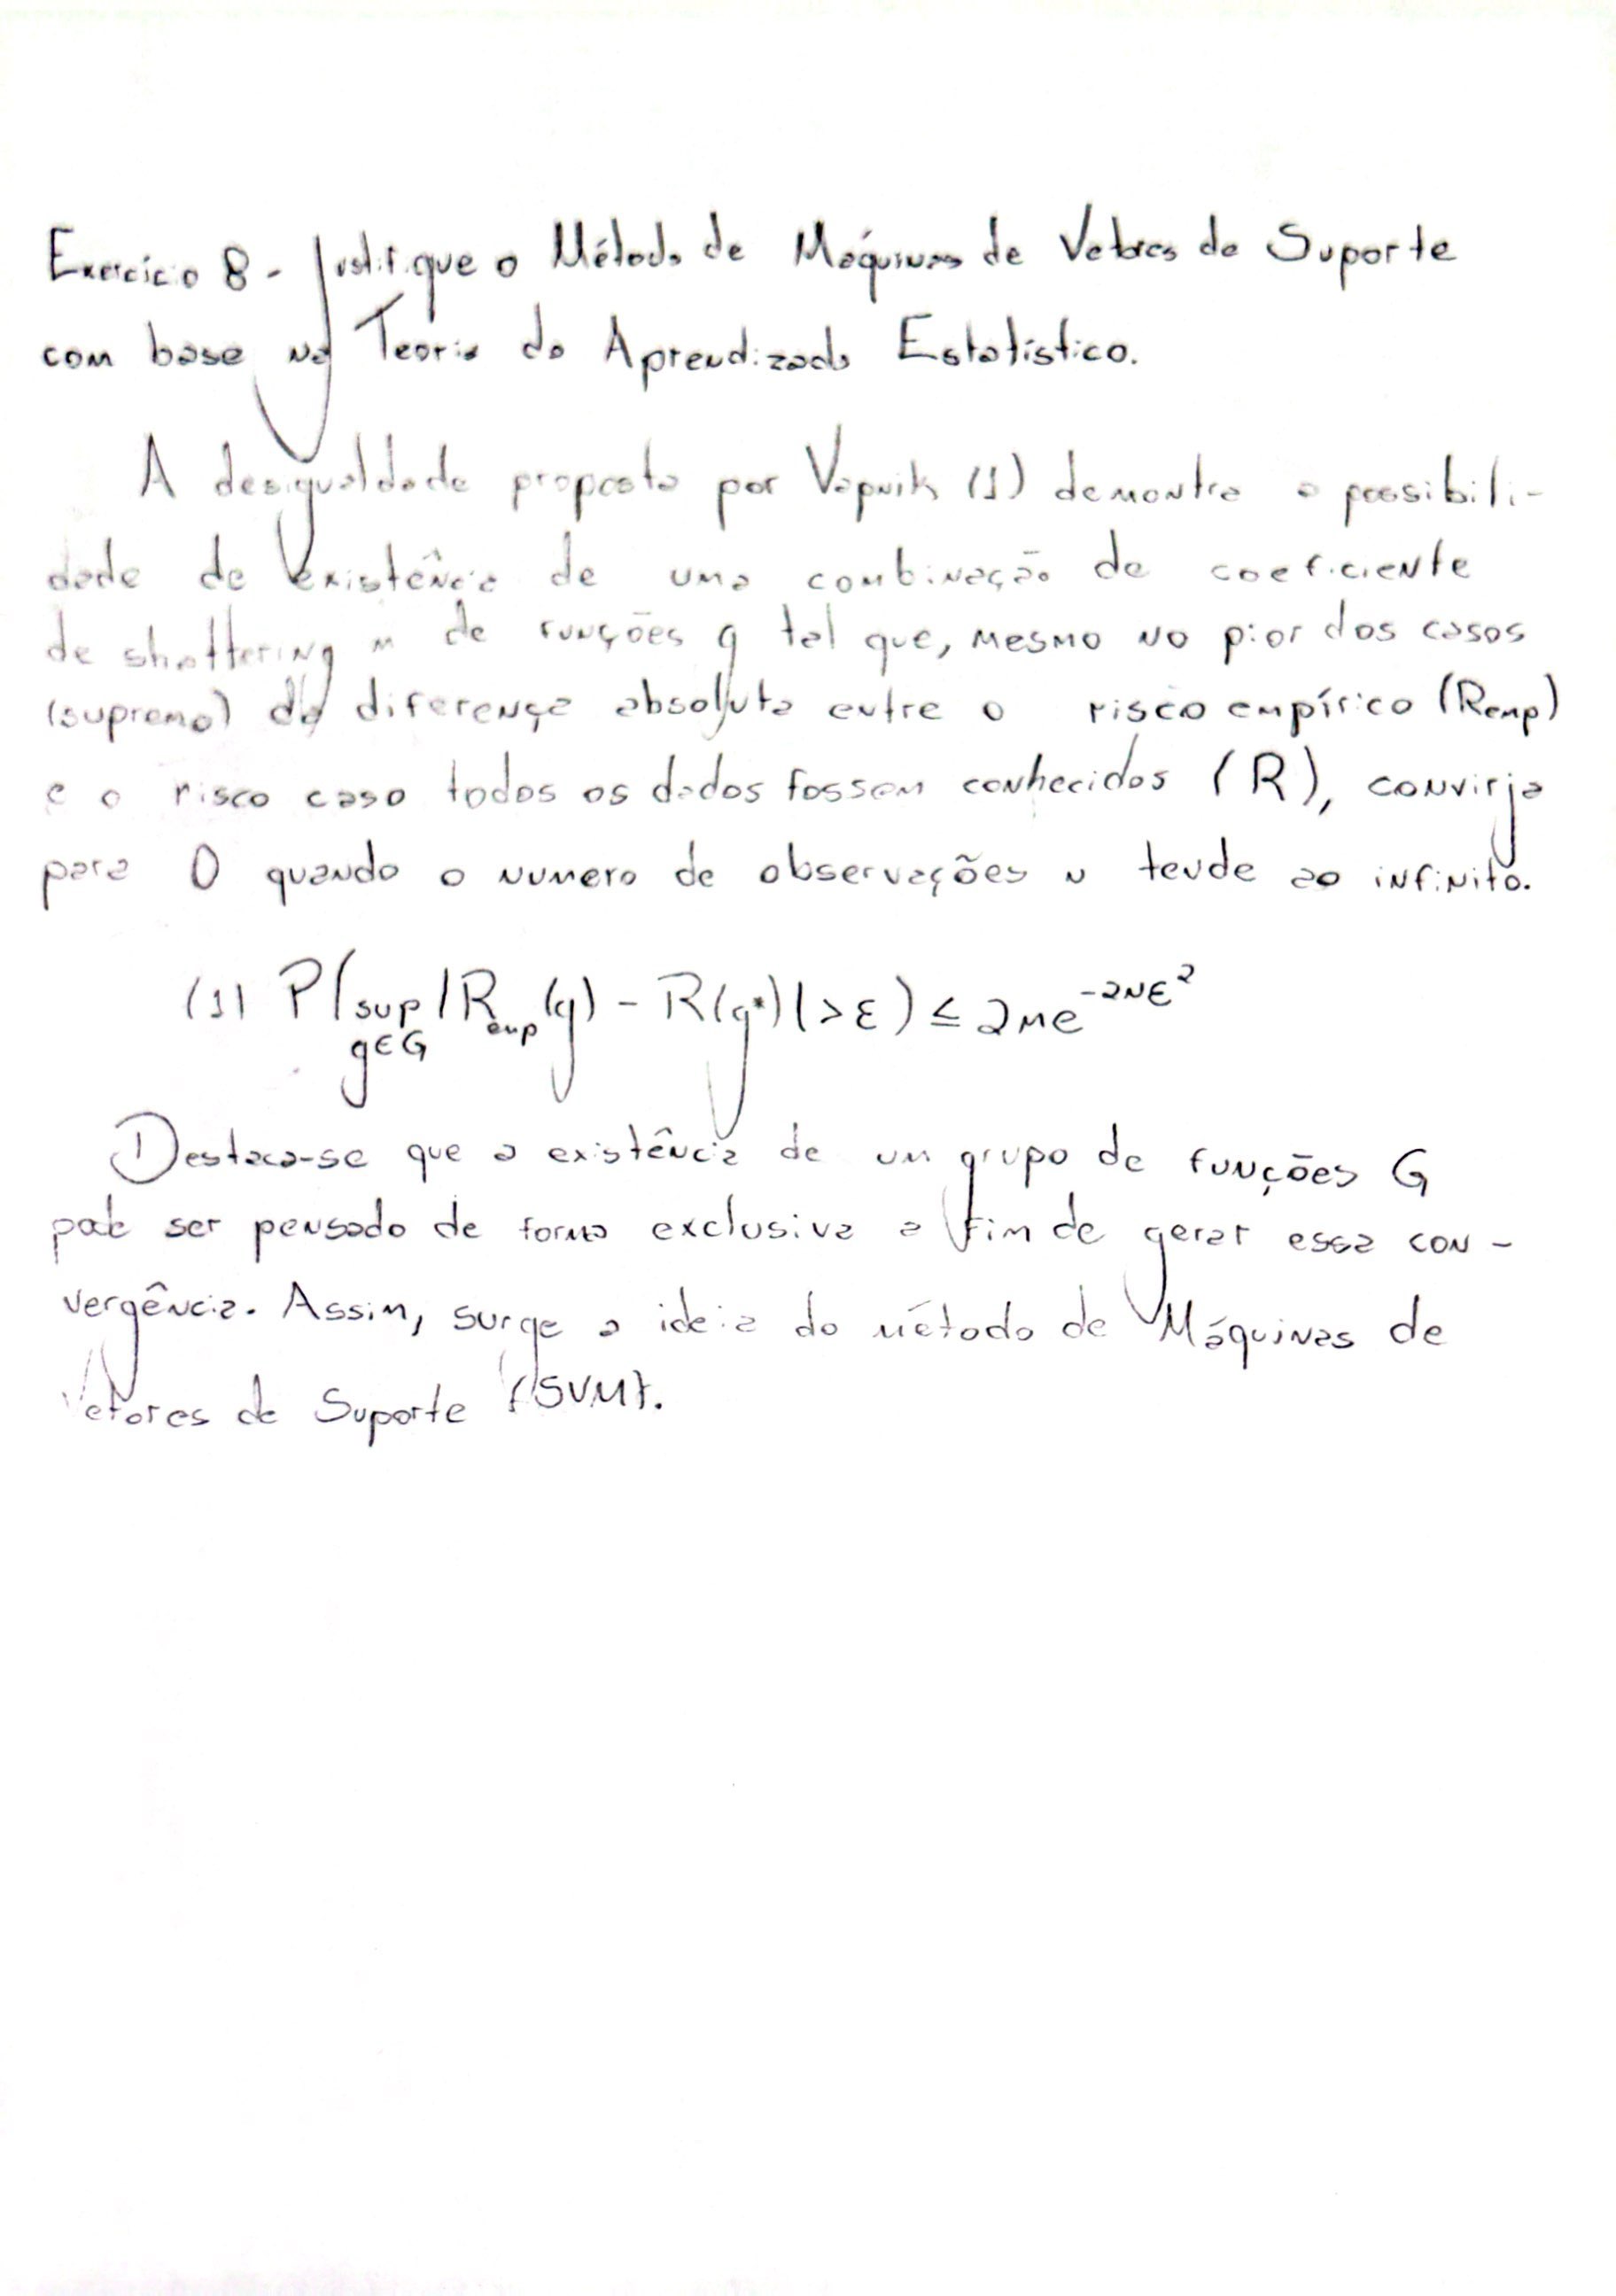 Exercício 8 - Justifique o Método de Máquinas de Vetores de Suporte
com base na Teoria do Aprendizado Estatístico.
A desigualdade proposta por Vapnik (1) demontra a possibili-
dade de existência de uma combinação de coeficiente
de shattering m de funções g tal que, mesmo no pior dos casos
(supremo) da diferença absoluta entre o risco empírico (Remp)
e o risco caso todos os dados fossem conhecidos (R), convirja
para 0 quando o numero de observações n tende ao infinito.
(1) P(sup g∈G |R_emp(g) - R(g*)| > ε) ≤ 2me^{-2nε²}
Destaca-se que a existência de um grupo de funções G
pode ser pensado de forma exclusiva a fim de gerar essa con-
vergência. Assim, surge a ideia do método de Máquinas de
Vetores de Suporte (SVM).